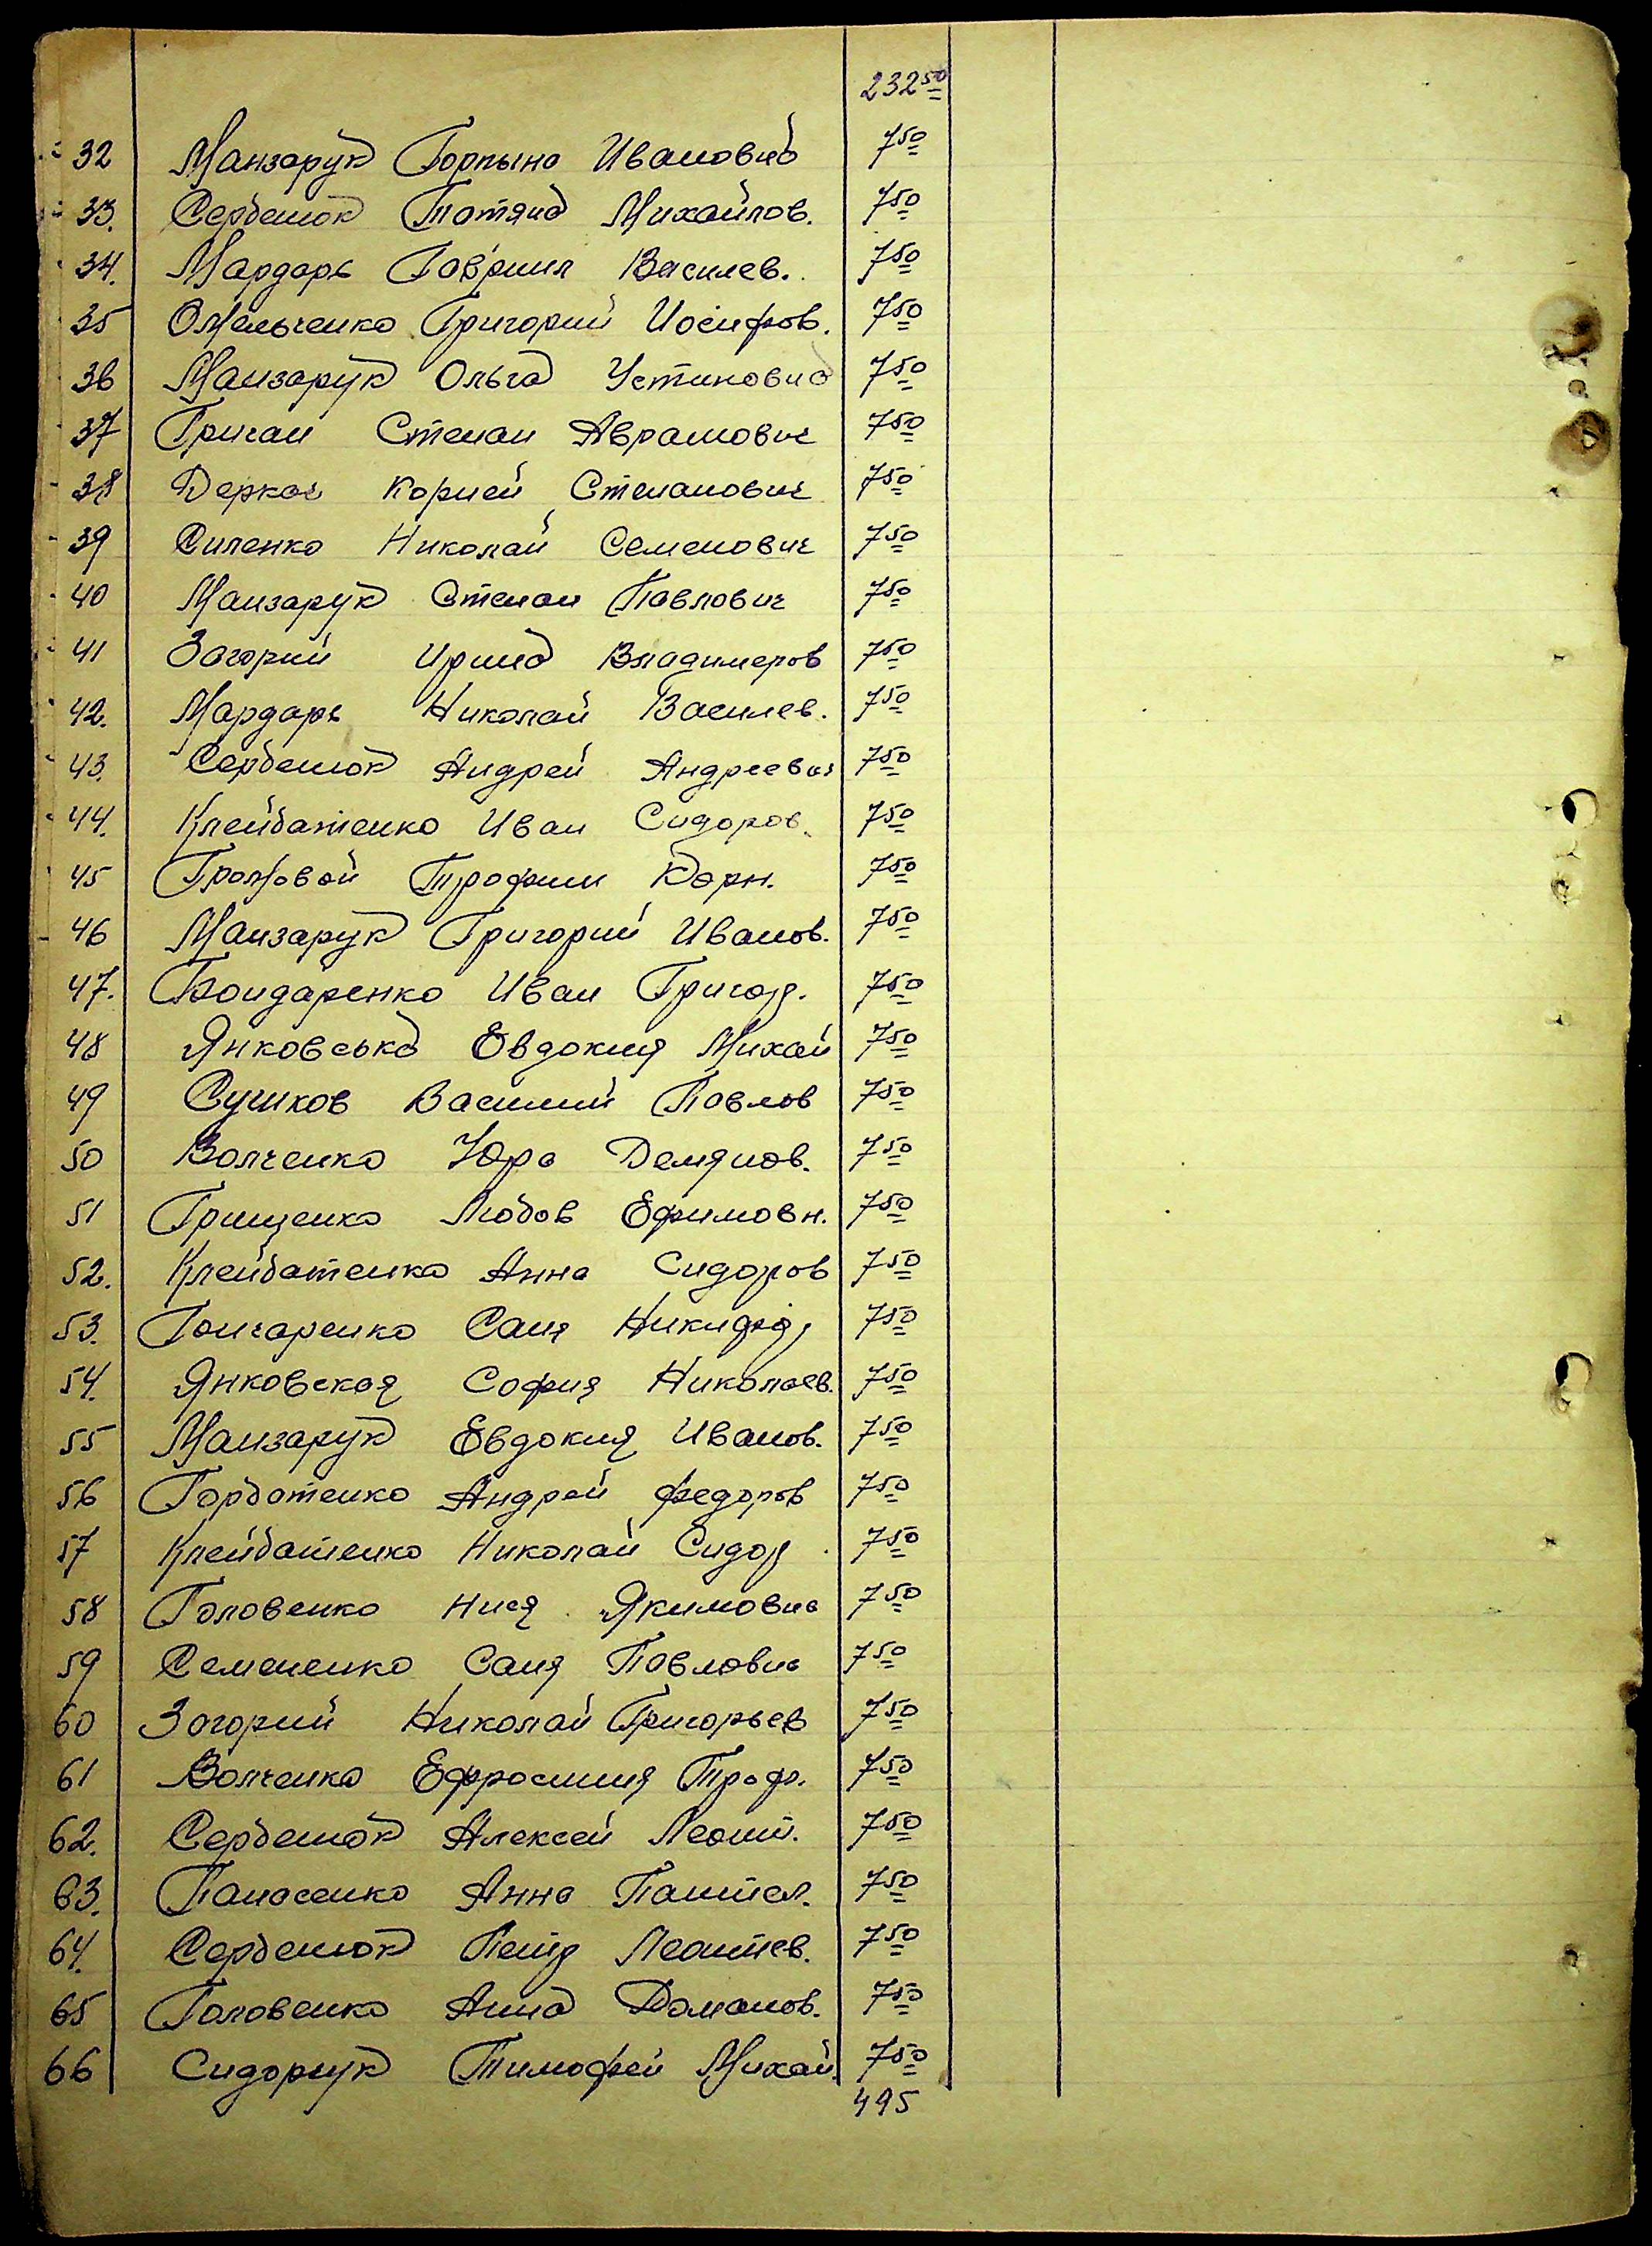 232 50
32 Манзарук Горпына Ивановна 7 50
33. Сербенюк Татяна Михайлов. 7 50
34. Мардарь Гавриил Василев. 7 50
35 Омельченко Григорий Иосифов. 7 50
36 Манзарук Ольга Устиновна 7 50
37 Гричан Степан Аврамович 7 50
38 Деркач Корней Степанович 7 50
39 Силенко Николай Семенович 7 50
40 Манзарук Степан Павлович 7 50
41 Загорий Ирина Владимеров 7 50
42. Мардарь Николай Василев. 7 50
43. Сербенюк Андрей Андреевич 7 50
44. Клейбатенко Иван Сидоров. 7 50
45 Громовой Трофим Корн. 7 50
46 Манзарук Григорий Иванов. 7 50
47. Бондаренко Иван Григор. 7 50
48 Янковська Евдокия Михай 7 50
49 Сучков Василий Павлов 7 50
50 Волченко Юра Демянов. 7 50
51 Грищенко Любов Ефимовн. 7 50
52. Клейбатенко Анна Сидоров 7 50
53. Гончаренко Саня Никифор 7 50
54. Янковская София Николаев. 7 50
55 Манзарук Евдокия Иванов. 7 50
56 Горбатенко Андрей Федоров 7 50
57 Клейбатенко Николай Сидор 7 50
58 Головенко Якимовна 7 50
59 Семененко Саня Павловна 7 50
60 Загорий Николай Григорьев 7 50
61 Волченко Ефросиния Троф. 7 50
62. Сербенюк Алексей Леонт. 7 50
63. Панасенко Анна Пантел. 7 50
64. Сербенюк Петр Леонтев. 7 50
65 Головенко Анна Доманов. 7 50
66 Сидорчук Тимофей Михай. 7 50
495